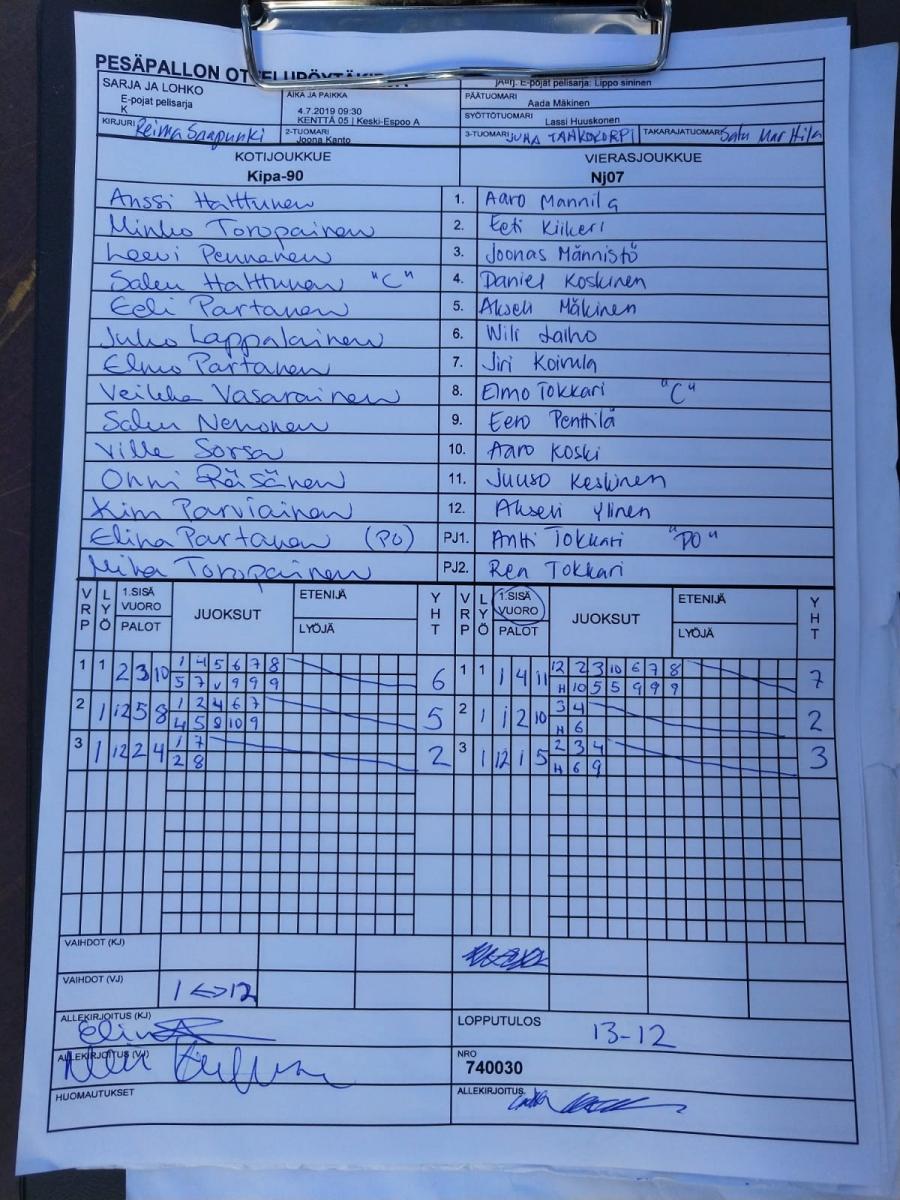 PESÄPALLON OTTELUPÖYTÄKIRJA
SARJA JA LOHKO
E-pojat pelisarja
K
AIKA JA PAIKKA
4.7.2019 09:30
KENTTÄ 05 | Keski-Espoo A
E-pojat pelisarja: Lippo sininen
PÄÄTUOMARI
Aada Mäkinen
SYÖTTÖTUOMARI
Lassi Huuskonen
KIRJURI Reima Saapunki
2-TUOMARI
Joona Kanto
3-TUOMARI JUHA TAAKOKORPI
TAKARAJATUOMARI Satu Marttila
KOTIJOUKKUE
Kipa-90
VIERASJOUKKUE
Nj07
Anssi Halttunen 1. Aaro Mannila
Minko Toropainen 2. Eeti Kiikeri
Leevi Pennanen 3. Joonas Männistö
Salu Halttunen "C" 4. Daniel Koskinen
Eeli Partanen 5. Akseli Mäkinen
Juho Lappalainen 6. Wili Laiho
Elmo Partanen 7. Jiri Koivula
Veikka Vasarainen 8. Elmo Tokkari "C"
Salu Nenonen 9. Eero Penttilä
Ville Sorsa 10. Aaro Koski
Onni Räisänen 11. Juuso Keskinen
Kim Parviainen 12. Akseli Ylinen
Elina Partanen (PO) PJ1. Antti Tokkari "PO"
Mika Toropainen PJ2. Rea Tokkari
VRP LYÖ 1.SISÄ VUORO PALOT JUOKSUT ETENIJÄ LYÖJÄ YHT VRP LYÖ 1.SISÄ VUORO PALOT JUOKSUT ETENIJÄ LYÖJÄ YHT
1 1 2 3 10 1 4 5 6 7 8 6 1 1 1 4 11 12 2 3 10 6 7 8 7
5 7 v 9 9 9 H 10 5 5 9 9 9
2 1 12 5 8 1 2 4 6 7 5 2 1 1 2 10 3 4 2
4 5 8 10 9 H 6
3 1 12 2 4 1 7 2 3 1 12 1 5 2 3 4 3
2 8 H 6 9
VAIHDOT (KJ)
VAIHDOT (VJ) 1 <=> 12
ALLEKIRJOITUS (KJ)
LOPPUTULOS 13-12
ALLEKIRJOITUS (VJ)
NRO
740030
HUOMAUTUKSET
ALLEKIRJOITUS